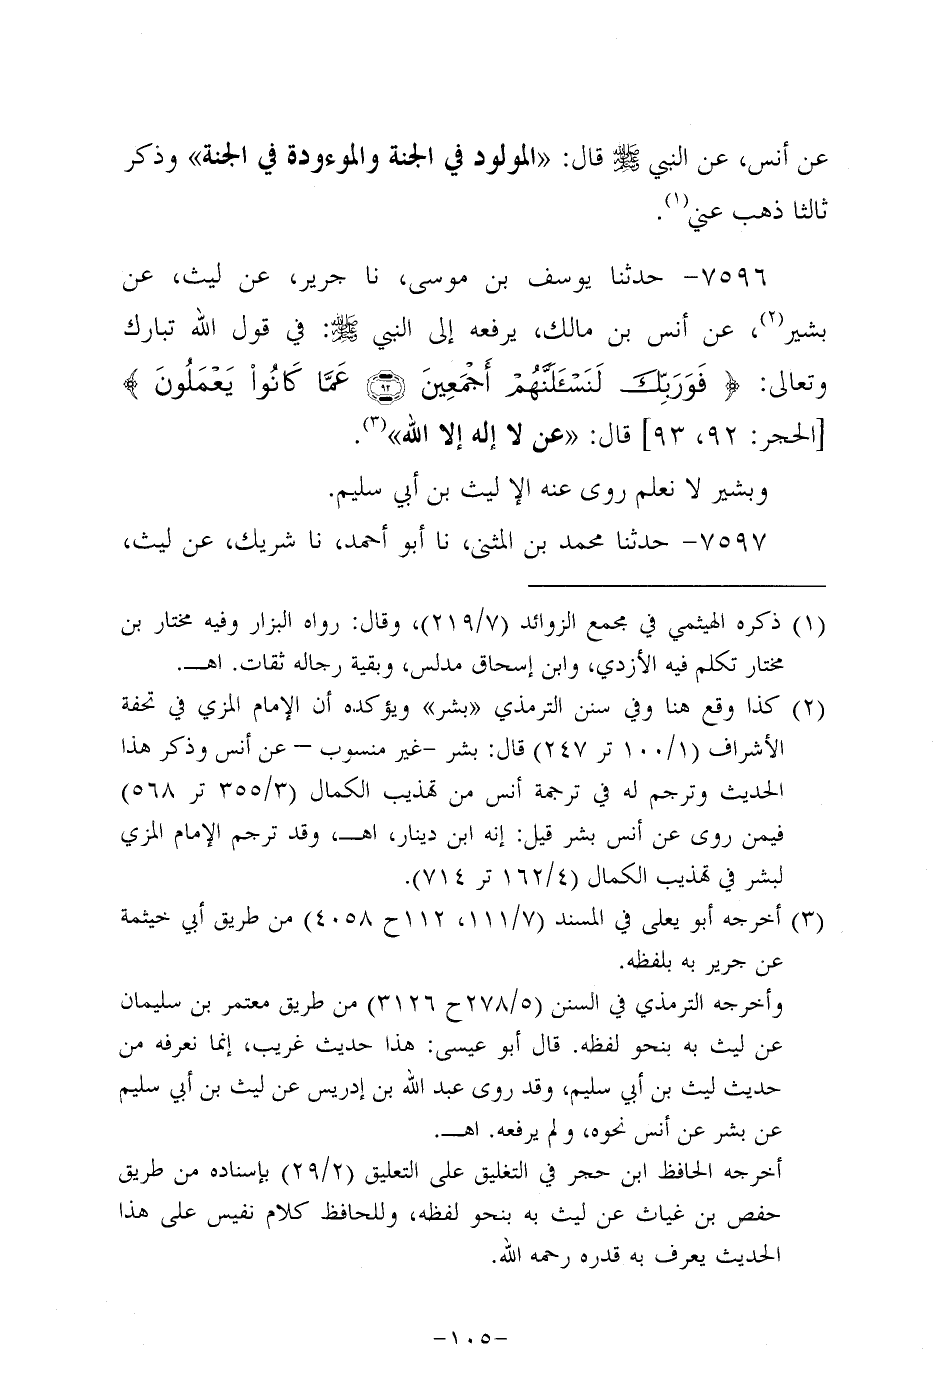 عن أنس، عن النبي ﷺ قال: «المولود في الجنة والموءودة في الجنة» وذكر
ثالثا ذهب عني(١).
٧٥٩٦- حدثنا يوسف بن موسى، نا جرير، عن ليث، عن
بشير(٢)، عن أنس بن مالك، يرفعه إلى النبي ﷺ: في قول الله تبارك
وتعالى: ﴿ فَوَرَبِّكَ لَنَسْـَٔلَنَّهُمْ أَجْمَعِينَ ۝٩٢ عَمَّا كَانُوا۟ يَعْمَلُونَ ﴾
[الحجر: ٩٢، ٩٣] قال: «عن لا إله إلا الله»(٣).
وبشير لا نعلم روى عنه الإ ليث بن أبي سليم.
٧٥٩٧- حدثنا محمد بن المثنى، نا أبو أحمد، نا شريك، عن ليث،
(١) ذكره الهيثمي في مجمع الزوائد (٢١٩/٧)، وقال: رواه البزار وفيه مختار بن
مختار تكلم فيه الأزدي، وابن إسحاق مدلس، وبقية رجاله ثقات. اهــ.
(٢) كذا وقع هنا وفي سنن الترمذي «بشر» ويؤكده أن الإمام المزي في تحفة
الأشراف (١٠٠/١ تر ٢٤٧) قال: بشر -غير منسوب – عن أنس وذكر هذا
الحديث وترجم له في ترجمة أنس من تهذيب الكمال (٣٥٥/٣ تر ٥٦٨)
فيمن روى عن أنس بشر قيل: إنه ابن دينار، اهــ، وقد ترجم الإمام المزي
لبشر في تهذيب الكمال (١٦٢/٤ تر ٧١٤).
(٣) أخرجه أبو يعلى في المسند (١١١/٧، ١١٢ح ٤٠٥٨) من طريق أبي خيثمة
عن جرير به بلفظه.
وأخرجه الترمذي في السنن (٢٧٨/٥ح ٣١٢٦) من طريق معتمر بن سليمان
عن ليث به بنحو لفظه. قال أبو عيسى: هذا حديث غريب، إنما نعرفه من
حديث ليث بن أبي سليم، وقد روى عبد الله بن إدريس عن ليث بن أبي سليم
عن بشر عن أنس نحوه، ولم يرفعه. اهــ.
أخرجه الحافظ ابن حجر في التغليق على التعليق (٢٩/٢) بإسناده من طريق
حفص بن غياث عن ليث به بنحو لفظه، وللحافظ كلام نفيس على هذا
الحديث يعرف به قدره رحمه الله.
-١٠٥-